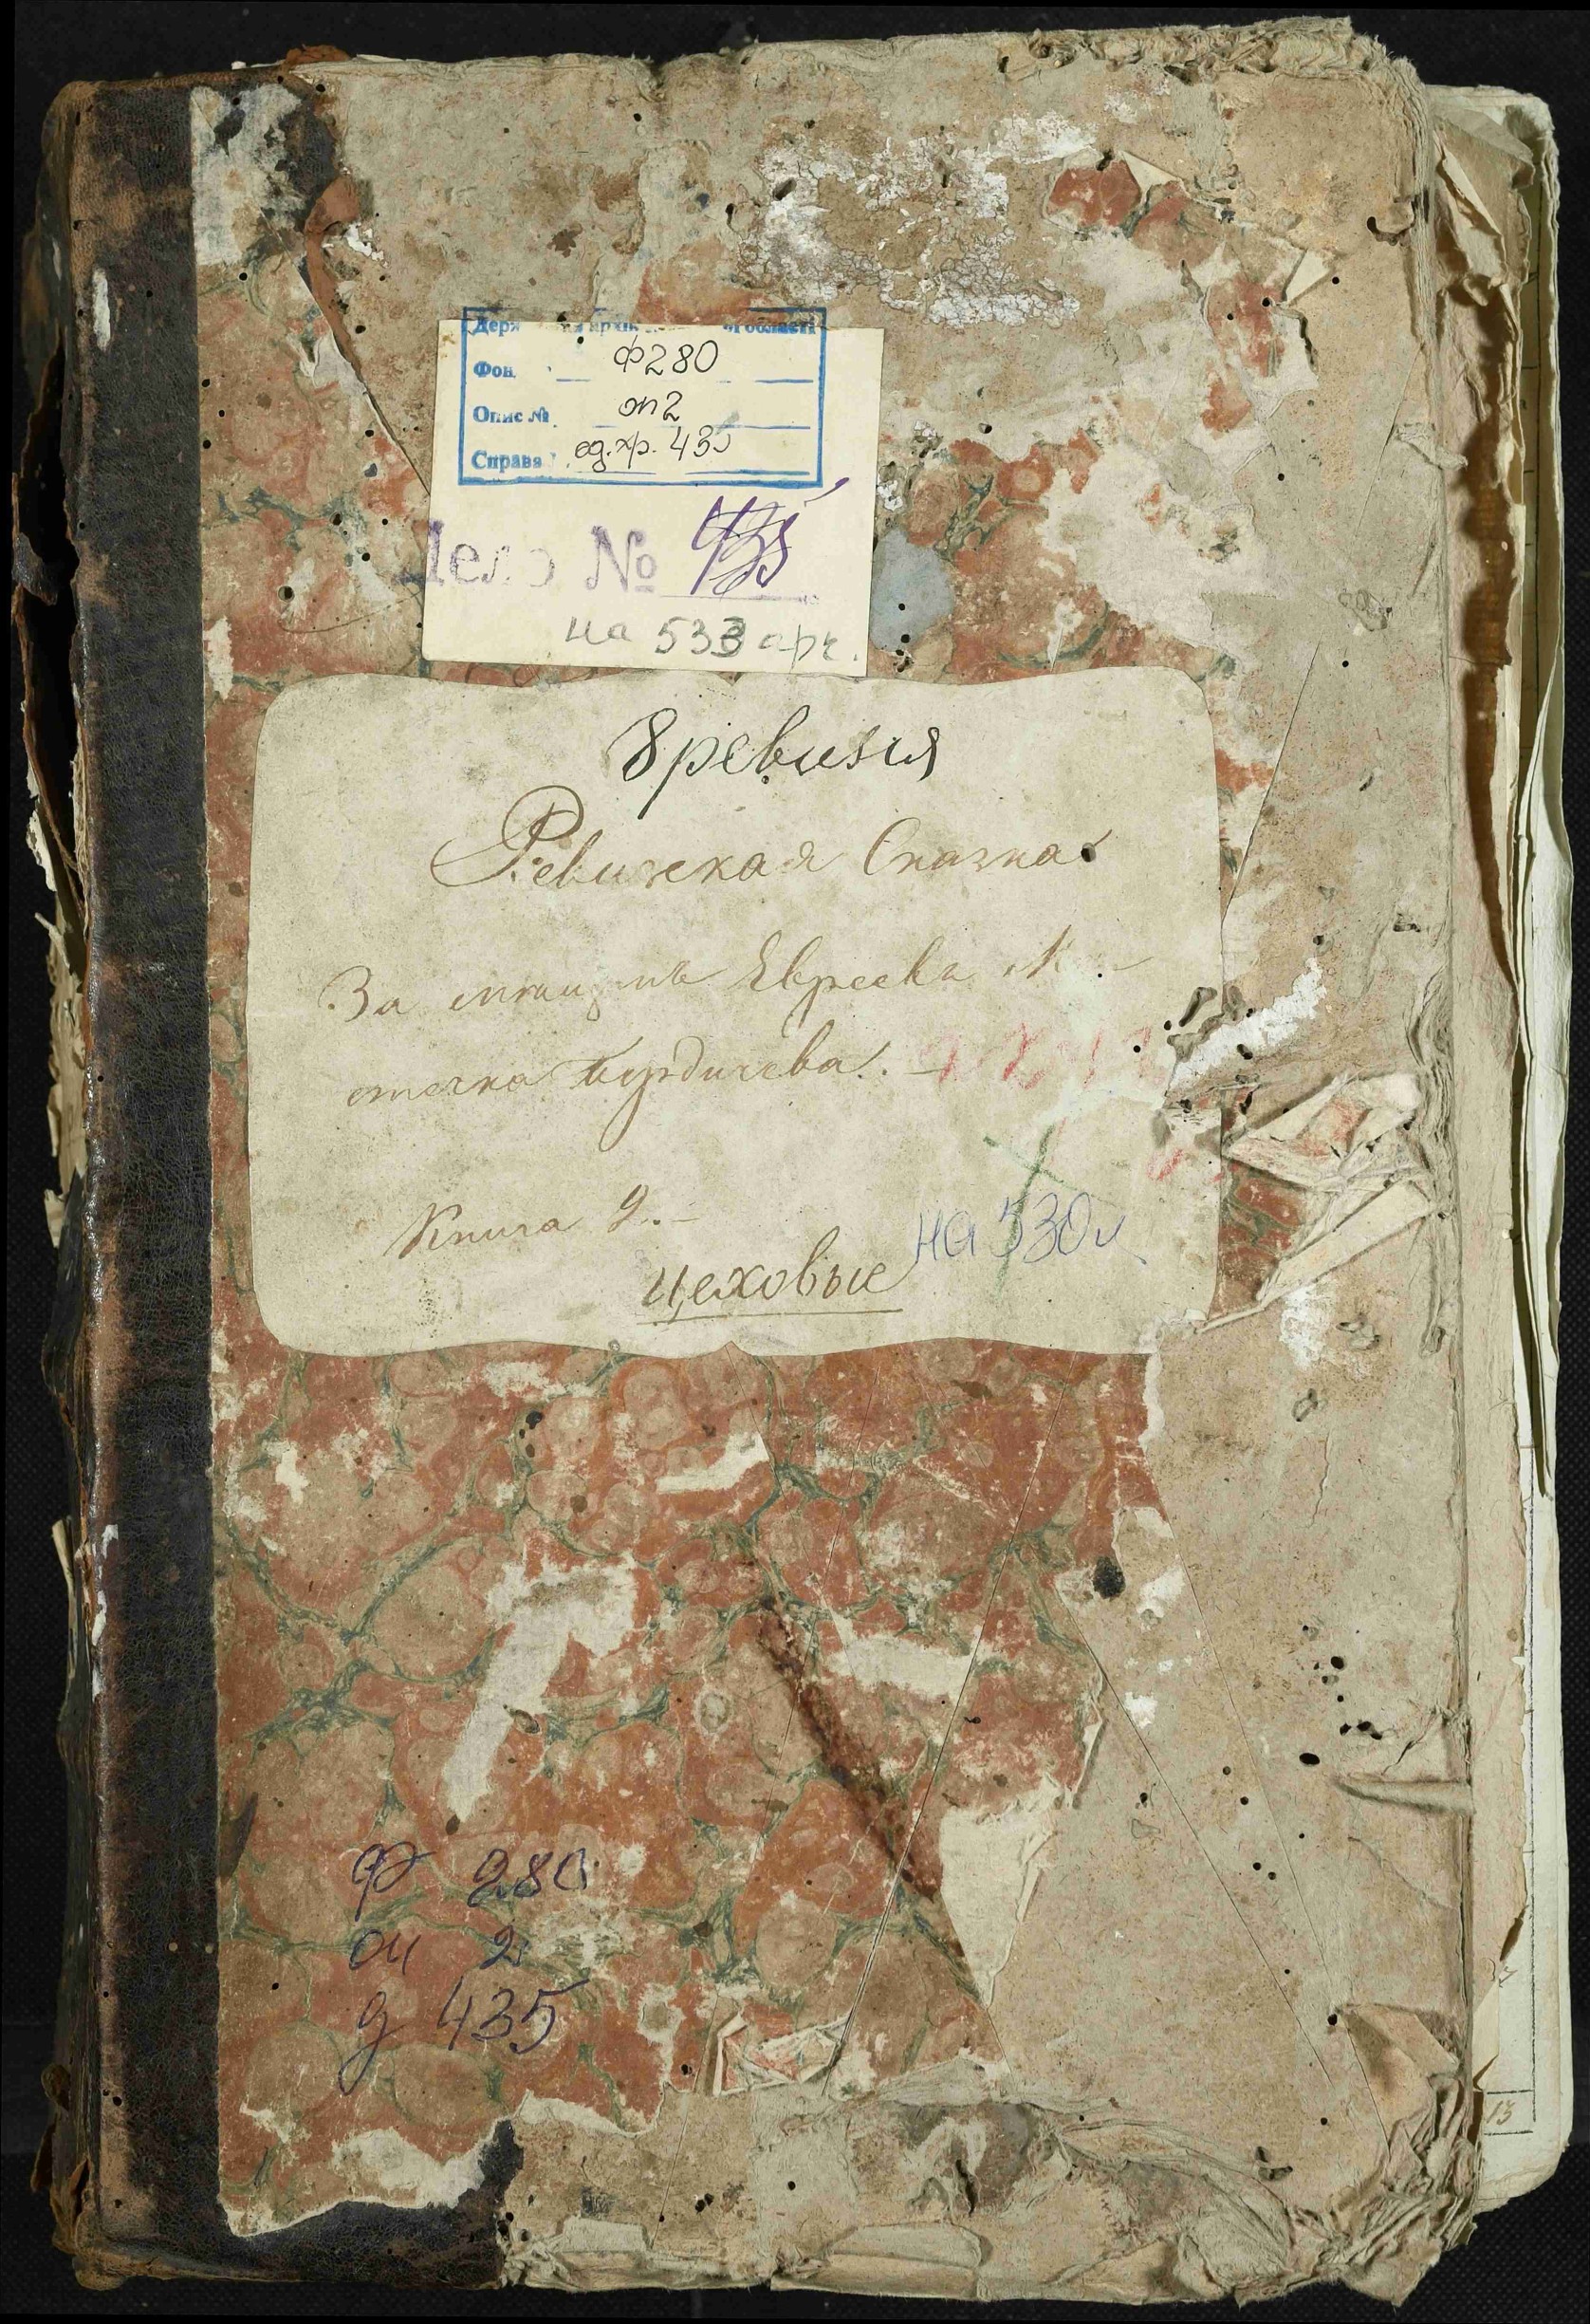 Фонд Ф280
Опис № оп2
Справа ед.хр. 435
Дело № 435
на 533 арк.
8 ревизия
Ревизская Сказка
За мещанъ Евреевъ М
стечка Бердичева.
Книга 2.
на 530 л
цеховые
ф 280
оп 2
д 435
13